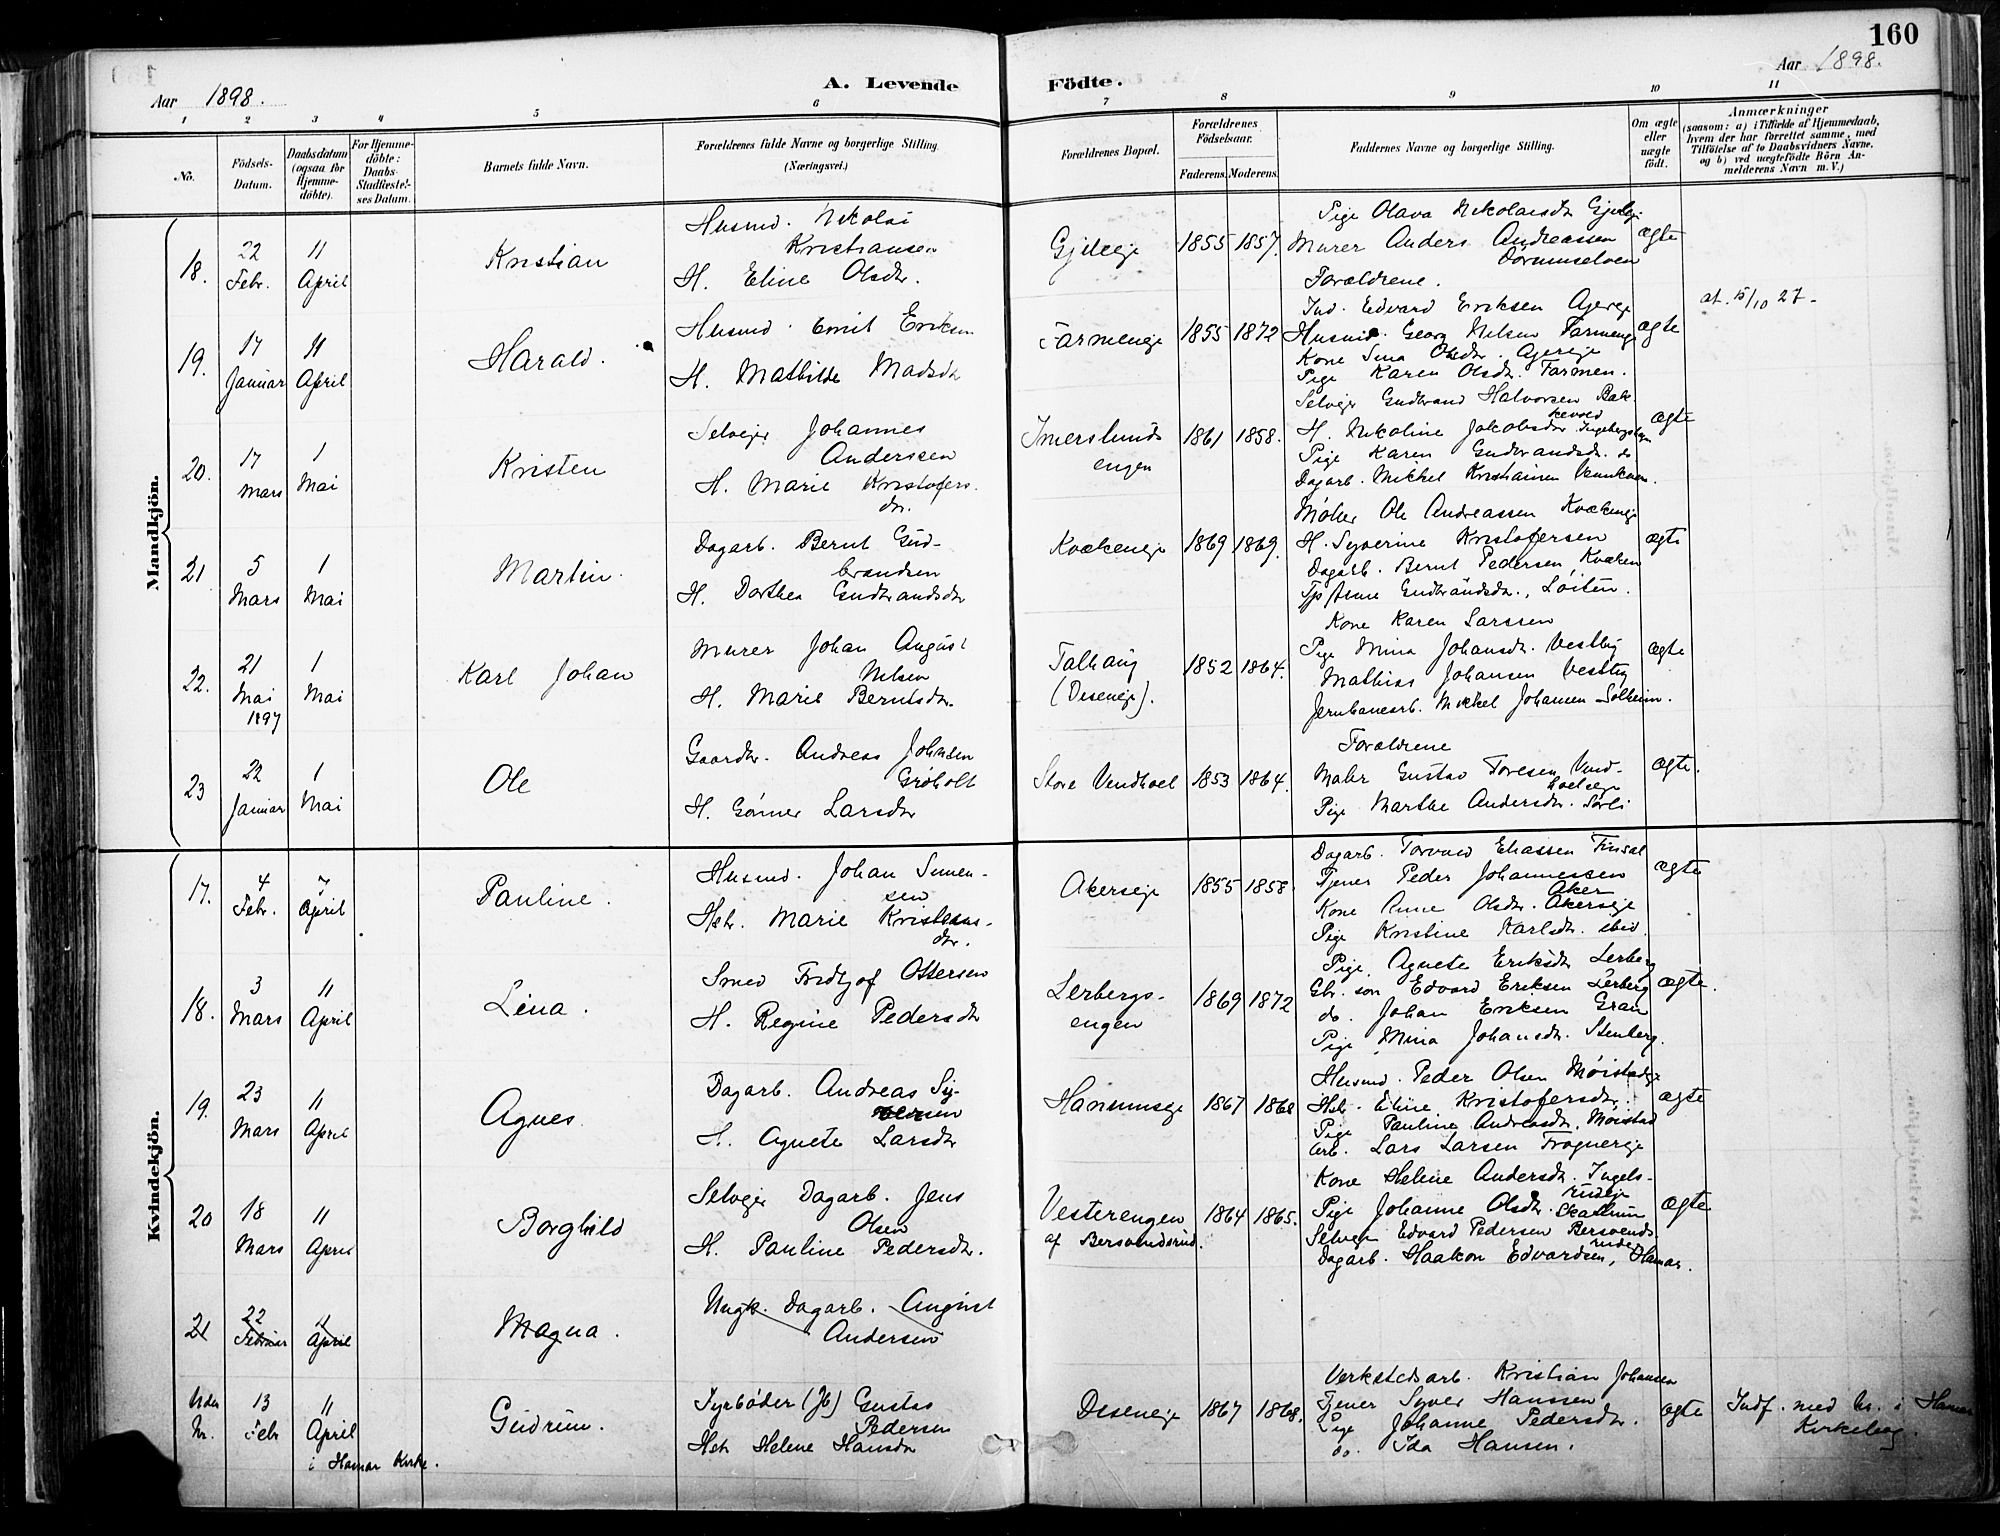 160
Aar 1898.
A. Levende Födte.
Aar 1898.
1 2 3 4 5 6 7 8 9 10 11
No.
Födsels-
Datum.
Daabsdatum
(ogsaa for
Hjemme-
döbte).
For Hjemme-
döbte:
Daabs-
Stadfæstel-
ses Datum.
Barnets fulde Navn.
Forældrenes fulde Navne og borgerlige Stilling
(Næringsvei.)
Forældrenes Bopæl.
Forældrenes
Födselsaar.
Faderens. Moderens.
Faddernes Navne og borgerlige Stilling.
Om ægte
eller
uægte
født.
Anmærkninger
(saasom: a) i Tilfælde af Hjemmedaab,
hvem der har forrettet samme, med
Tilföielse af to Daabsvidners Navne,
og b) ved uægtefödte Börn An-
melderens Navn m. V.)
Mandkjön.
18.
22
Febr.
11
April
Kristian
Husmd. Nikolai
Kristiansen
H. Eline Olsdtr.
Gjileeje
1855
1857.
Pige Olava Nikolaisdtr
Murer Anders Andreassen
Forældrene.
ægte
19.
17
Januar
11
April
Harald.
Husmd. Emil Eriksen
H. Mathilde Madsdtr
Farmeneje
1855
1872
Ind. Edvard Eriksen Ajereje
Husmd. Georg Nilsen Farmeneje
Kone Sina Olsdtr. Ajereje
Pige Karen Olsdtr. Farmen.
ægte
at. 15/10 27.
20.
17
Mars
1
Mai
Kristen
Selvejer Johannes
Anderssen
H. Marie Kristofers-
dtr.
Imerslunds
engen
1861
1858.
Selvejer Gudbrand Halvorsen Bak-
kevold
H. Nikoline Jakobsdtr
Pige Karen Gudbrandsdtr. do
Dagarb. Mikkel Kristiansen
ægte
21
5
Mars
1
Mai
Martin.
Dagarb. Bernt Gud-
brandsen
H. Dorthea Gudbrandsdtr
Kvækeneje
1869
1869.
Møller Ole Andreassen Kvækeneje
H. Syverine Kristofersen
Dagarb. Bernt Pedersen Kvæken
Anne Gudbrandsdtr., Løiten.
ægte
22.
21
Mai
1897
1
Mai
Karl Johan
Murer Johan August
Nilsen
H. Marie Berntsdtr.
Talhaug
(Deseneje).
1852
1864.
Kone Karen Larssen
Pige Mina Johansdtr. Vestby
Mathias Johansen Vestby
Jernbanearb. Mikkel Johansen Solheim.
ægte
23
22
Januar
1
Mai
Ole
Gaardbr. Andreas Johnsen
Grøholt
H. Gønner Larsdtr
Store Vendkvel
1853
1864.
Forældrene
Maler Gustav Toresen Vend-
kveleje
Pige Marthe Andersdtr. Sørli
ægte.
Kvindekjön.
17.
4
Febr.
7
April
Pauline.
Husmd. Johan Simen-
sen
Hstr. Marie Kristians-
dtr.
Akerseje
1855
1858.
Dagarb. Torvald Eliassen Finsal
Tjener Peder Johannessen
Aker
Kone Anne Olsdtr. Akerseje
Pige Kristine Karlsdtr. ibid.
ægte
18.
3
Mars
11
April
Lina.
Smed Fridtjof Ottersen
H. Regine Pedersdtr
Lerbergs-
engen
1869
1872
Pige Agnete Eriksdtr Lerberg
Gbr. søn Edvard Eriksen Lerberg
do. Johan Eriksen Gran
Pige Mina Johansdtr. Stenberg.
ægte.
19.
23
Mars
11
April
Agnes
Dagarb. Andreas Sy-
versen
H. Agnete Larsdtr
Hanumseje
1867
1868
Husmd. Peder Olsen Møistadeje
Hstr. Eline Kristofersdtr.
Pige Pauline Andreasdtr. Møistad
Arb. Lars Larsen Frognereje
ægte
20
18
Mars
11
April
Borghild
Selvejer Dagarb. Jens
Olsen
H. Pauline Pedersdtr.
Vesterengen
af Bersvendsrud.
1864
1865.
Kone Helene Andersdtr. Ingels-
rudeje
Pige Johanne Olsdtr. Skattum
Selvejer Edvard Pedersen Bersvends-
rudeje
Dagarb. Haakon Edvardsen, Hamar.
ægte
21
22
Februar
11
April
Magna.
Ungk. Dagarb. August
Andersen
Uden
Nr.
13
Febr
11
April
i Hamar Kirke.
Gudrun.
Fyrbøder (Jb) Gustav
Pedersen
Hstr Helene Hansdtr
Deseneje
1867
1868.
Verkstedsarb. Kristian Johansen
Tjener Syver Hanssen
Pige Johanne Pedersdtr.
do. Ida Hansen.
ægte
Indf. med Nr. i Hamar
Kirkebog.